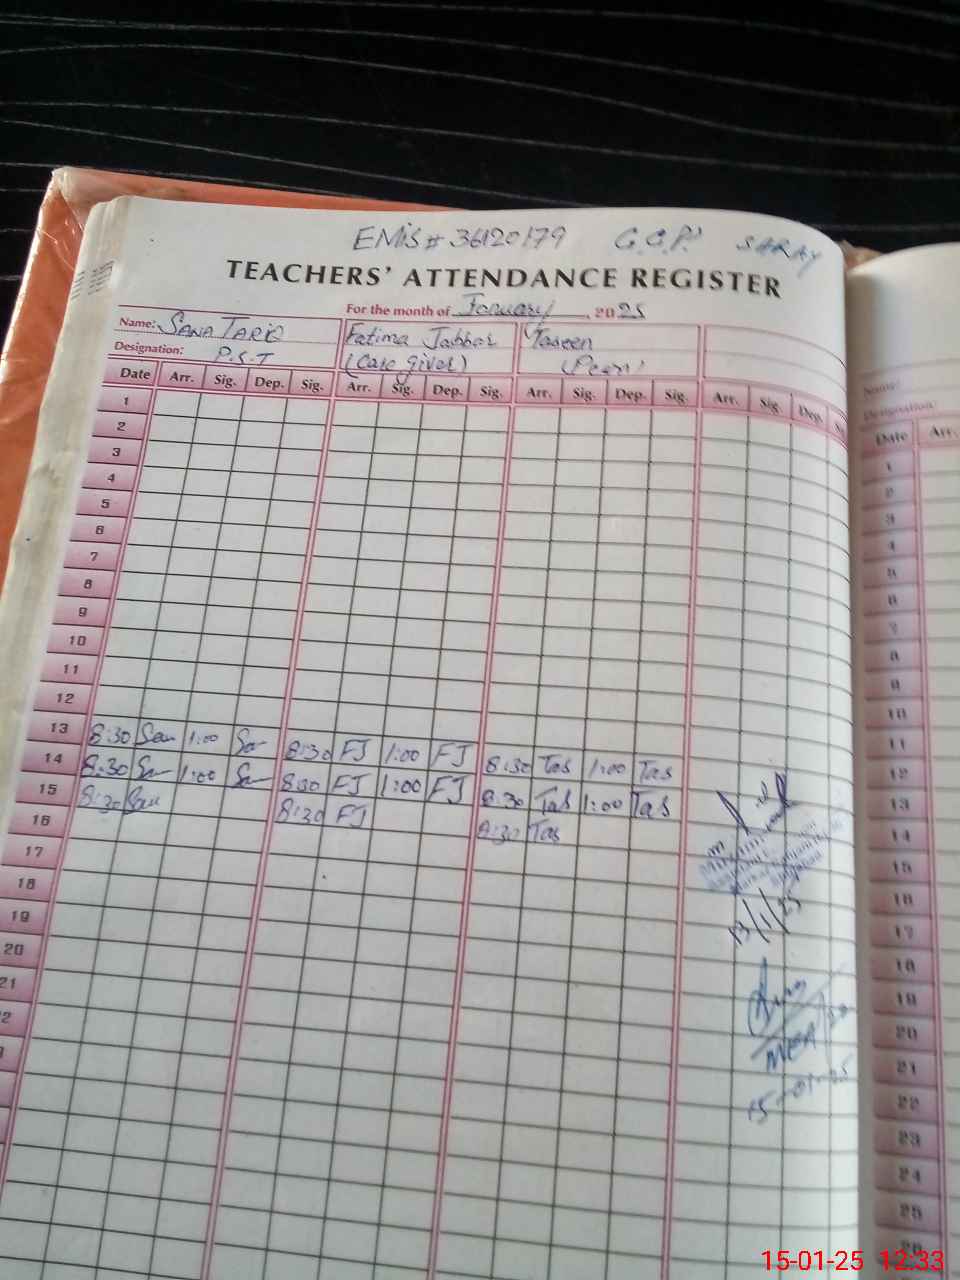 EMIS # 36120179 G.G.P.S SARAY
TEACHERS' ATTENDANCE REGISTER
For the month of January, 2025
Name: SANA TARIQ Fatima Jabbar Yaseen
Designation: P.S.T (Care giver) (Peon)
Date Arr. Sig. Dep. Sig. Arr. Sig. Dep. Sig. Arr. Sig. Dep. Sig. Arr. Sig. Dep.
1
2
3
4
5
6
7
8
9
10
11
12
13 8:30 San 1:00 Sa 8:30 FJ 1:00 FJ 8:30 Tas 1:00 Tas
14 8:30 Sa 1:00 Sa 8:30 FJ 1:00 FJ 8:30 Tas 1:00 Tas
15 8:30 San 8:30 FJ 8:30 Tas
16
17
18
19
20
21
13/1/25
MEA
15-01-25
Name:
Designation:
Date Arr.
1
2
3
4
5
6
7
8
9
10
11
12
13
14
15
16
17
18
19
20
21
22
23
24
25
26
15-01-25 12:33